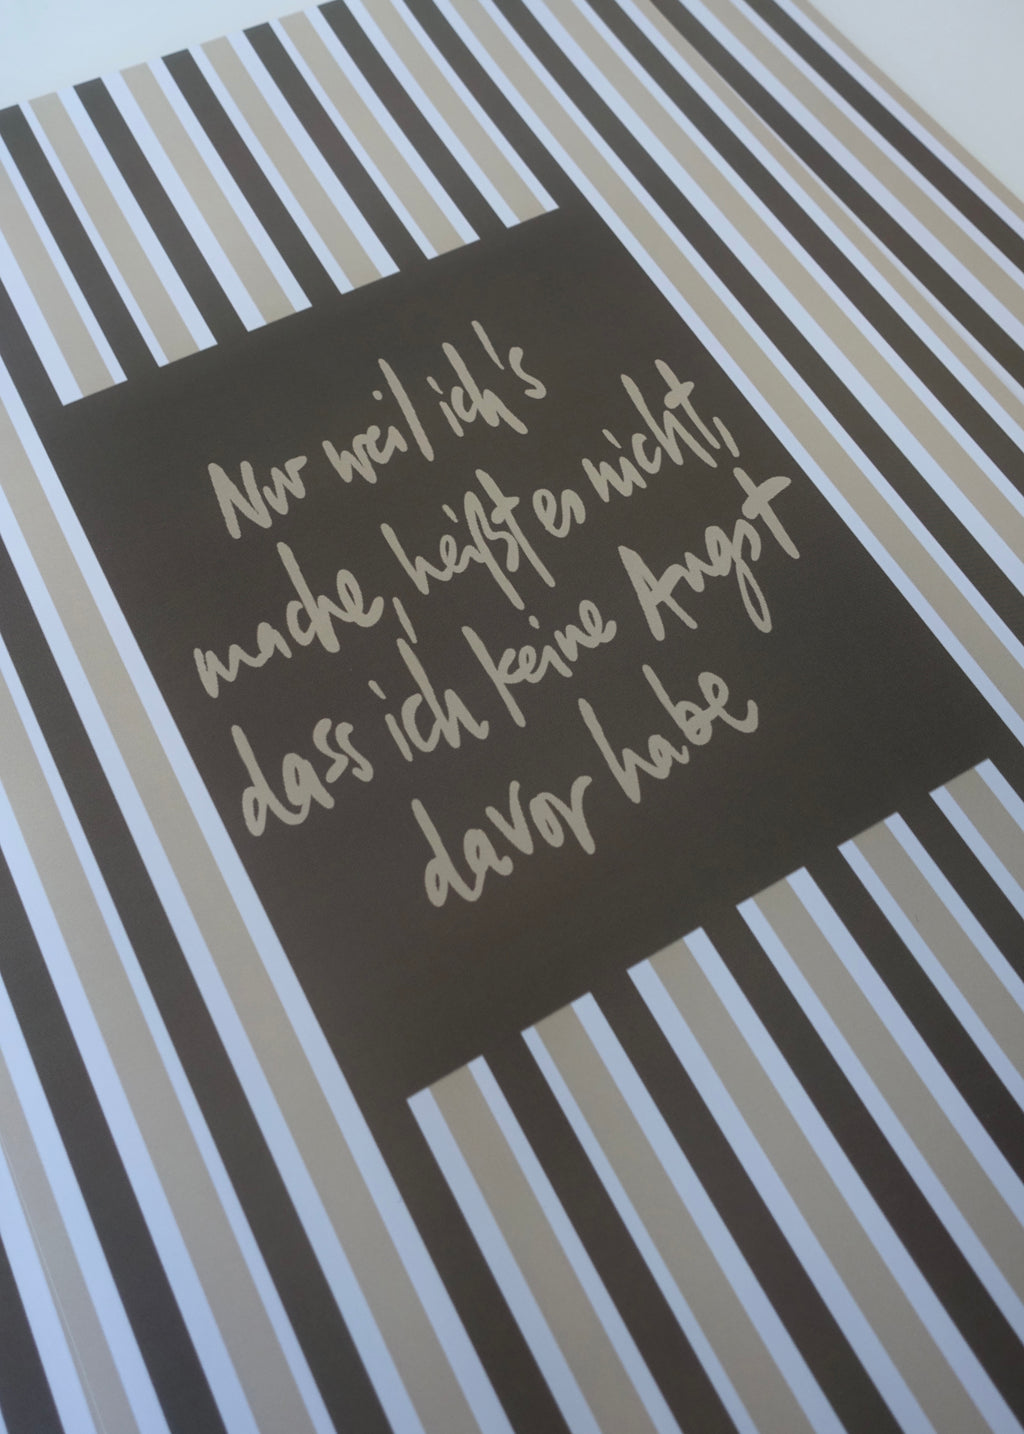 Nur weil ich's
mache, heißt es nicht,
dass ich keine Angst
davor habe